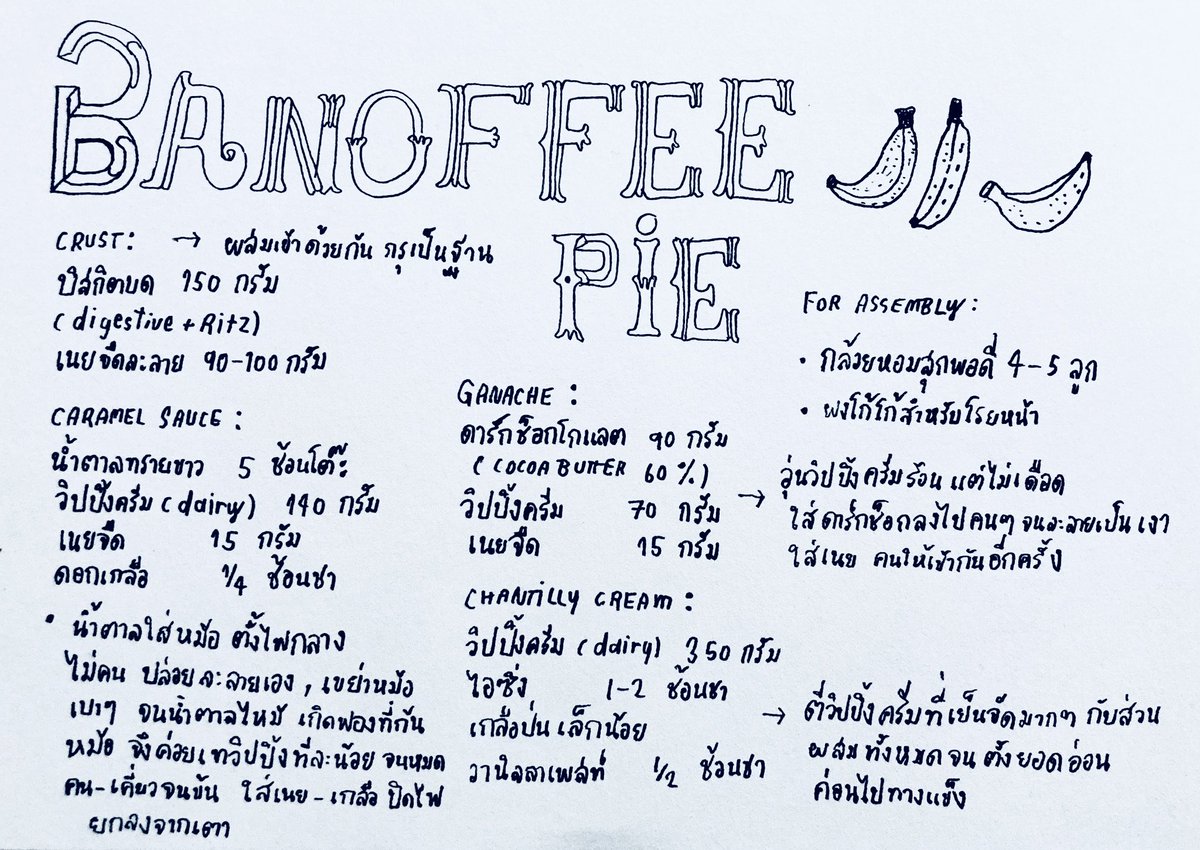 BANOFFEE
PIE
CRUST: → ผสมเข้าด้วยกัน กรุเป็นฐาน
บิสกิตบด 150 กรัม
(digestive + Ritz)
เนยจืดละลาย 90-100 กรัม
CARAMEL SAUCE:
น้ำตาลทรายขาว 5 ช้อนโต๊ะ
วิปปิ้งครีม (dairy) 140 กรัม
เนยจืด 15 กรัม
ดอกเกลือ 1/4 ช้อนชา
• น้ำตาลใส่หม้อ ตั้งไฟกลาง
ไม่คน ปล่อยละลายเอง, เขย่าหม้อ
เบาๆ จนน้ำตาลไหม้ เกิดฟองที่ก้น
หม้อ จึงค่อยเทวิปปิ้งทีละน้อย จนหมด
คน-เคี่ยวจนข้น ใส่เนย-เกลือ ปิดไฟ
ยกลงจากเตา
GANACHE:
ดาร์กช็อกโกแลต 90 กรัม
(COCOA BUTTER 60%)
วิปปิ้งครีม 70 กรัม
เนยจืด 15 กรัม
→ อุ่นวิปปิ้งครีมร้อน แต่ไม่เดือด
ใส่ดาร์กช็อกลงไปคนๆ จนละลายเป็นเงา
ใส่เนย คนให้เข้ากันอีกครั้ง
CHANTILLY CREAM:
วิปปิ้งครีม (dairy) 350 กรัม
ไอซิ่ง 1-2 ช้อนชา
เกลือป่น เล็กน้อย
วานิลลาเพสท์ 1/2 ช้อนชา
→ ตีวิปปิ้งครีมที่เย็นจัดมากๆ กับส่วน
ผสมทั้งหมดจนตั้งยอดอ่อน
ค่อนไปทางแข็ง
FOR ASSEMBLY:
• กล้วยหอมสุกพอดี 4-5 ลูก
• ผงโก้โก้สำหรับโรยหน้า